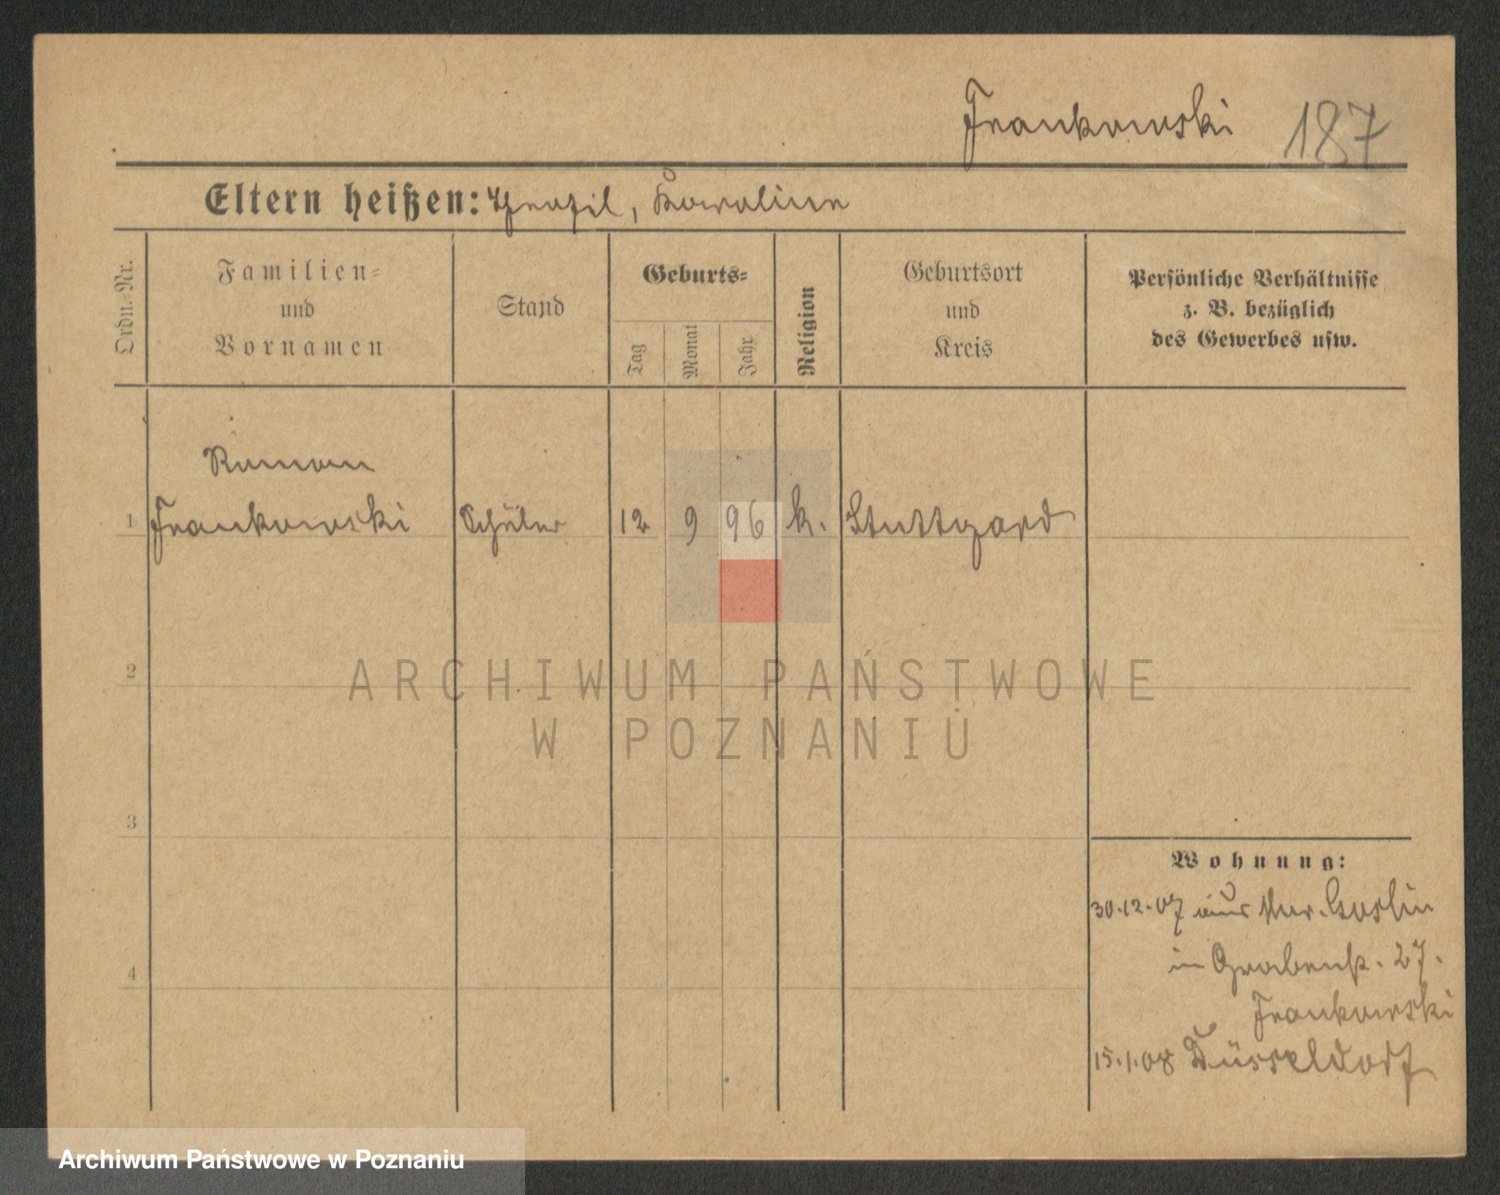 Frankowski 187
Eltern heißen: Theofil, Karoline
Ordn.-Nr.
Familien-
und
Vornamen
Stand
Geburts-
Tag
Monat
Jahr
Religion
Geburtsort
und
Kreis
Persönliche Verhältnisse
z. B. bezüglich
des Gewerbes usw.
Roman
1 Frankowski Schüler 12 9 96 k. Stuttgard
2
ARCHIWUM PAŃSTWOWE
W POZNANIU
3
Wohnung:
30.12.07 aus Mur. Goslin
4
in Grabenstr. 27.
Frankowski
15.1.08 Düsseldorf
Archiwum Państwowe w Poznaniu